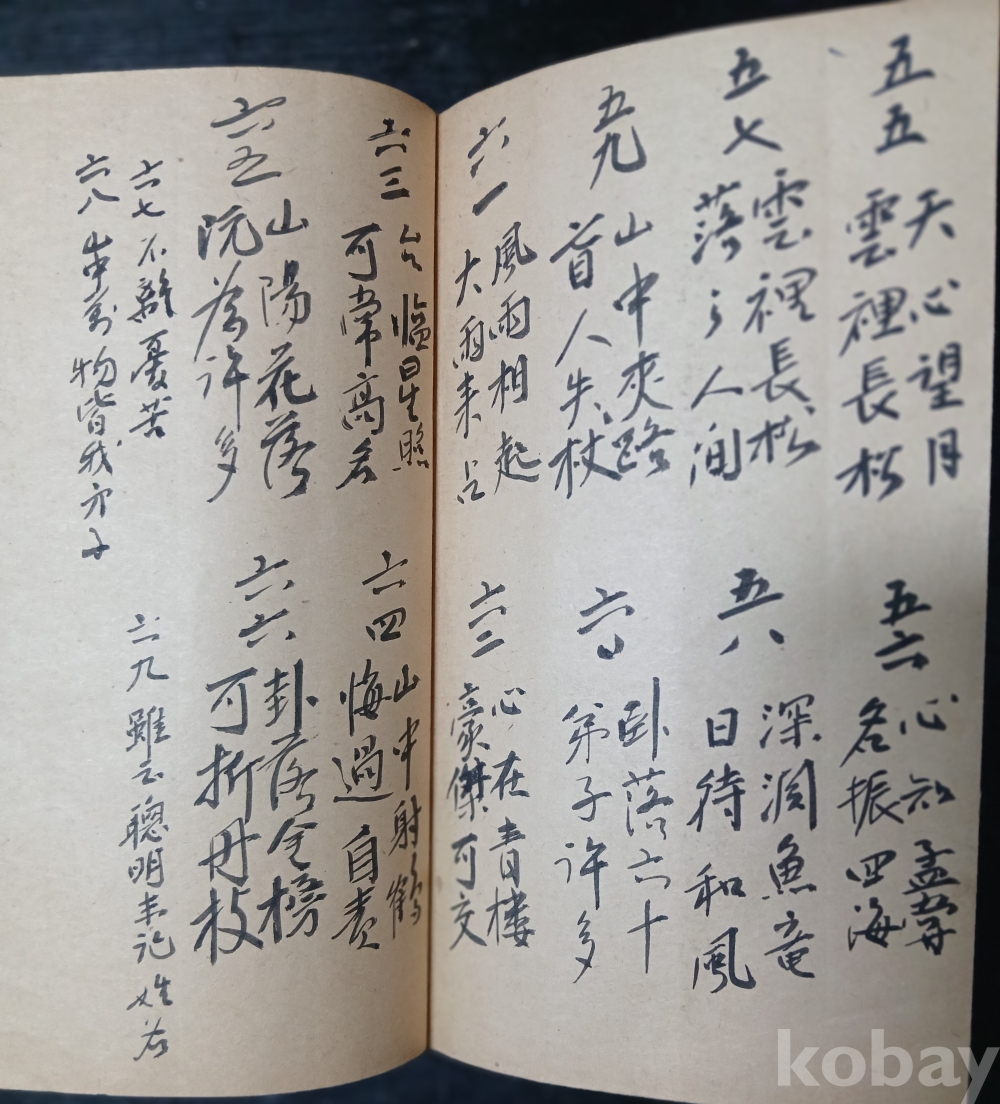 五五
天心望月
雲裡長松
五六
心如孟嘗
名振四海
五七
雲裡長松
落之人間
五八
深淵魚竜
日待和風
五九
山中夾路
盲人失杖
六十
卧落六十
弟子許多
六一
風雨相起
大雨来占
六二
心在青樓
豪傑可交
六三
台临星照
可常高名
六四
山中射鶴
悔過自責
六五
山陽花落
阮為許多
六六
卦落金榜
可折丹枝
六七 不離憂苦
六八 山中萬物皆我
六九 雖云聰明未記姓名
kobay